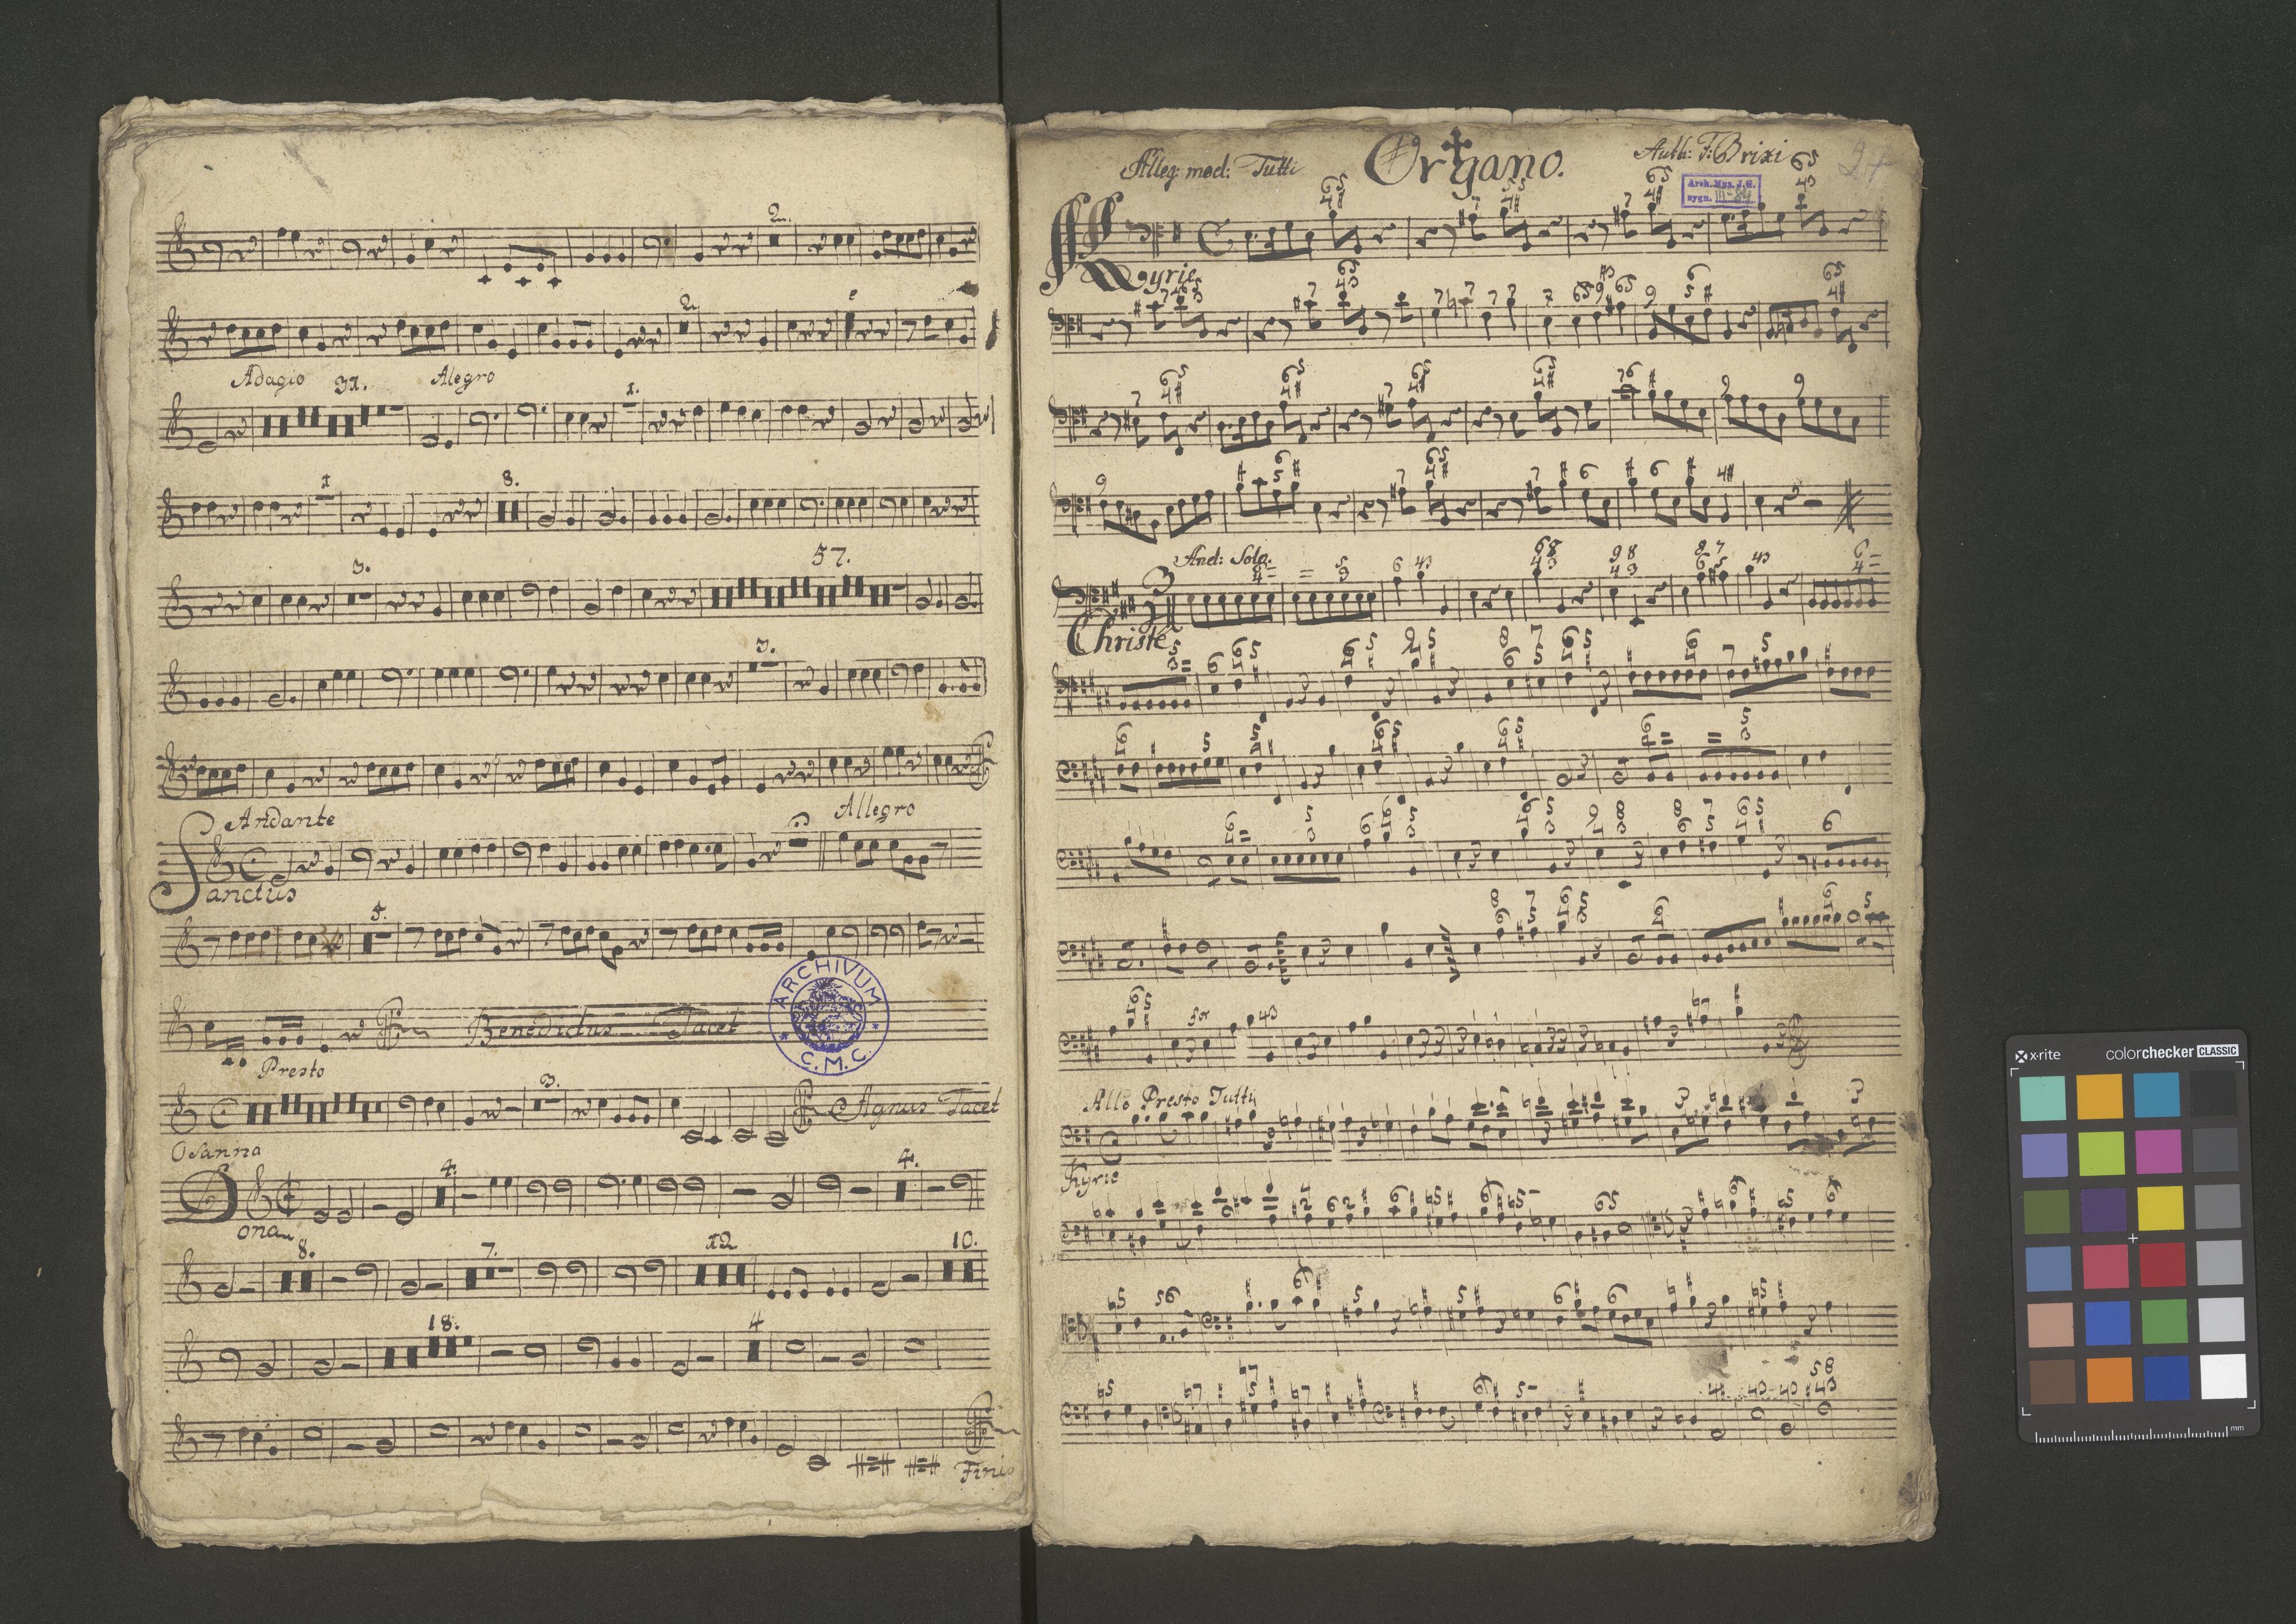 2.
2.
Adagio 31. Alegro 1.
1 8.
3. 57.
3.
Andante Allegro
Sanctus
5.
Benedictus Tacet
ARCHIVUM
C. M. C.
Presto 3. Agnus Tacet
Osanna
4. 4.
Dona
8. 7. 12 10.
18. 4
Finis
Alleg: mod: Tutti Organo. Auth: F: Brixi
Arch. Mus. J. G.
sygn. III-84
Kyrie
And: Solo.
Christe
for
Allo Presto Tutti
Kyrie
x-rite colorchecker CLASSIC
mm